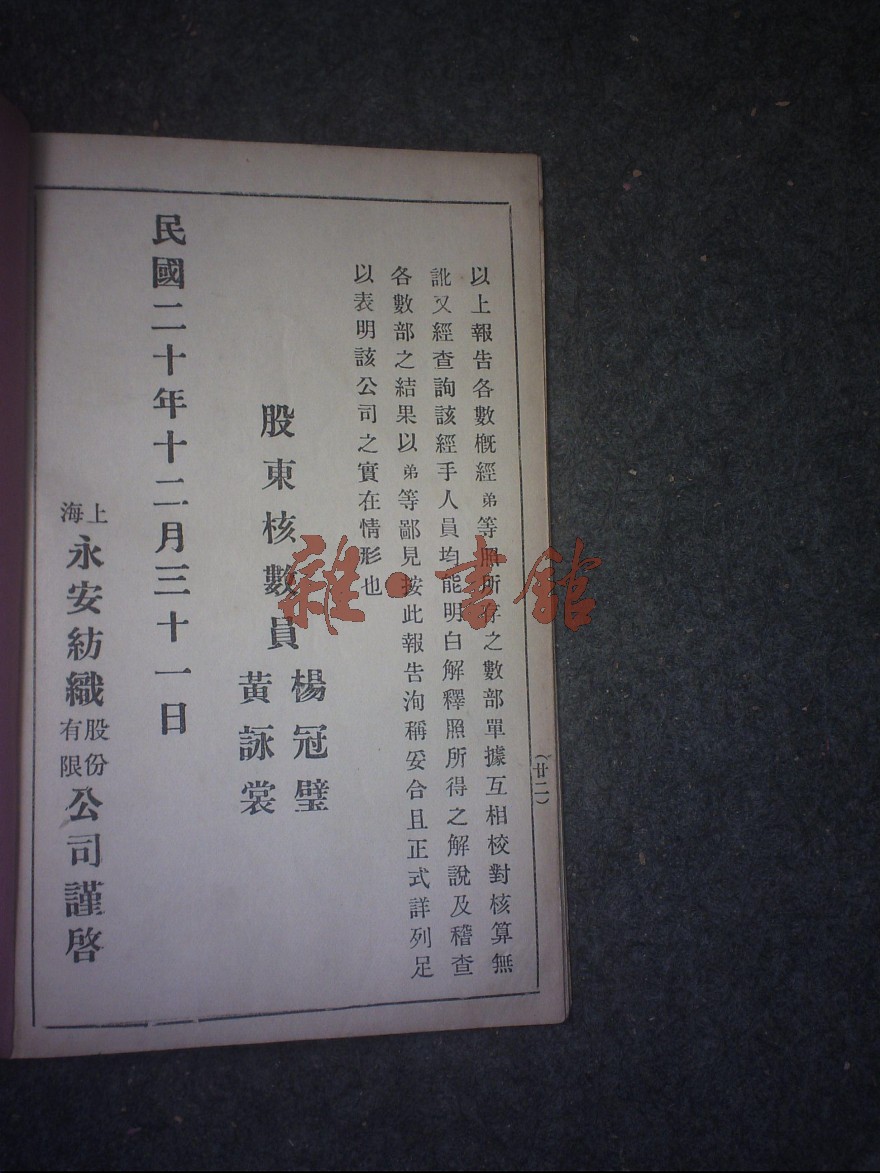 以上報告各數概經弟等照所存之數部單據互相校對核算無
訛又經查詢該經手人員均能明白解釋照所得之解說及稽查
各數部之結果以弟等鄙見按此報告洵稱妥合且正式詳列足
以表明該公司之實在情形也
股東核數員
楊冠璧
黃詠裳
民國二十年十二月三十一日
上海永安紡織股份有限公司謹啓
(廿二)
雜·書館